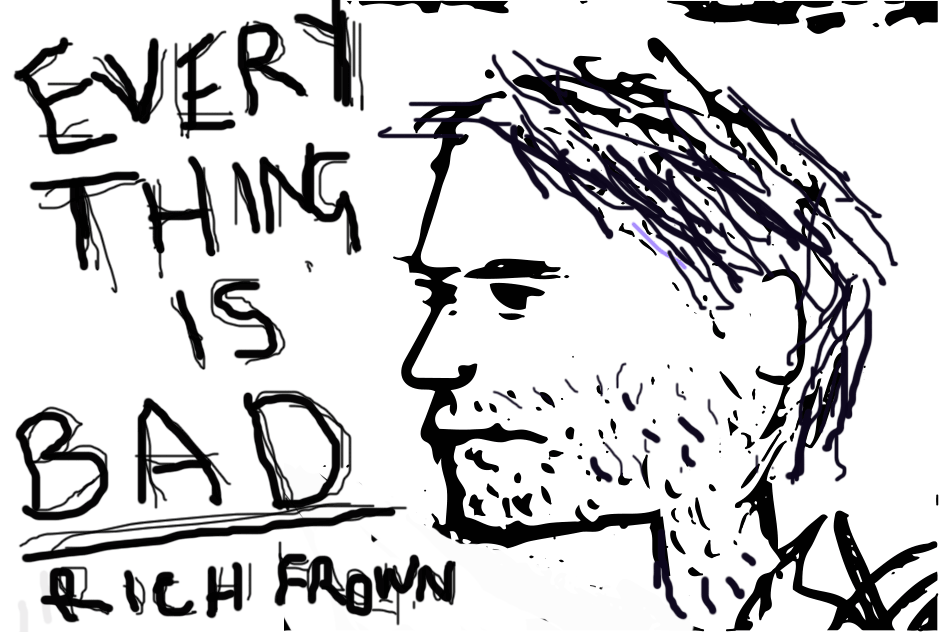 EVERY
THING
IS
BAD
RICH FROWN